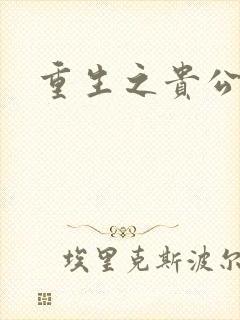 重生之貴公
埃里克斯波尔